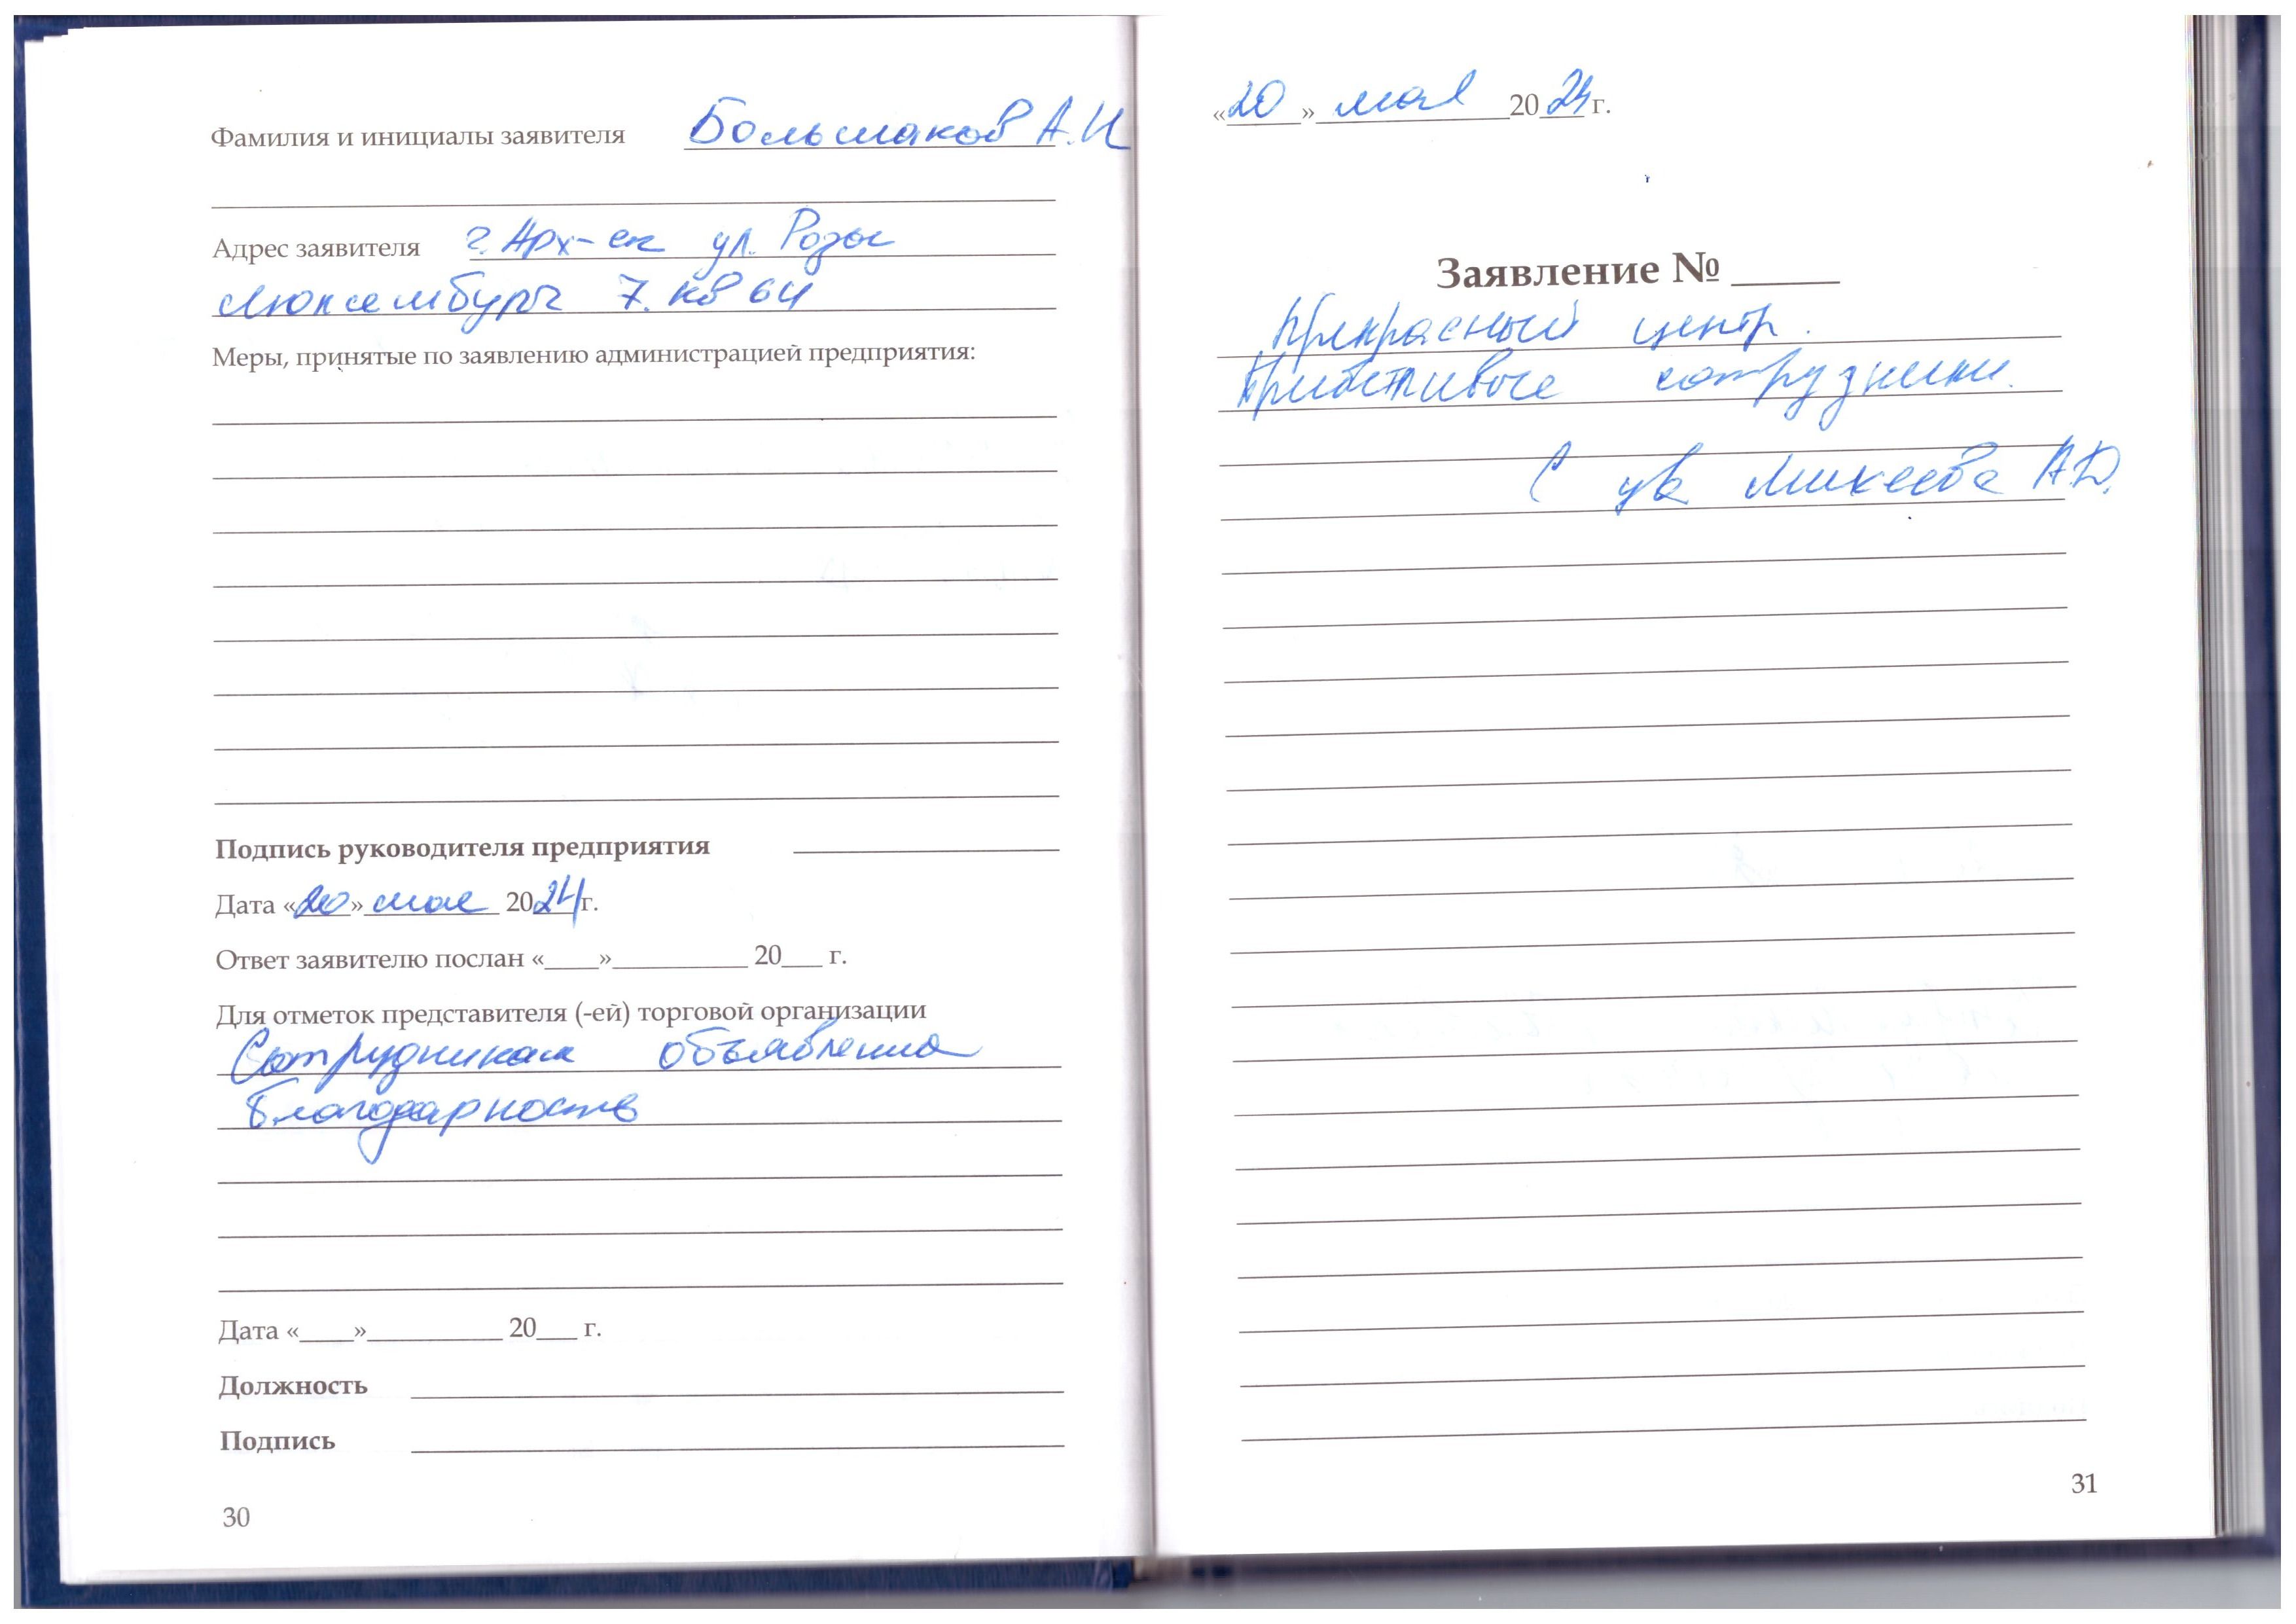 Фамилия и инициалы заявителя Большаков А.И
Адрес заявителя г. Арх-ск ул. Розы
Люксембург 7. кв 64
Меры, принятые по заявлению администрацией предприятия:
Подпись руководителя предприятия
Дата «20» мая 2024 г.
Ответ заявителю послан «____»__________ 20___ г.
Для отметок представителя (-ей) торговой организации
Сотрудникам объявлена
благодарность
Дата «____»__________ 20___ г.
Должность
Подпись
30
«20» мая 2024 г.
Заявление № _____
Прекрасный центр.
Приветливые сотрудники.
С ув Микеева А.Д.
31